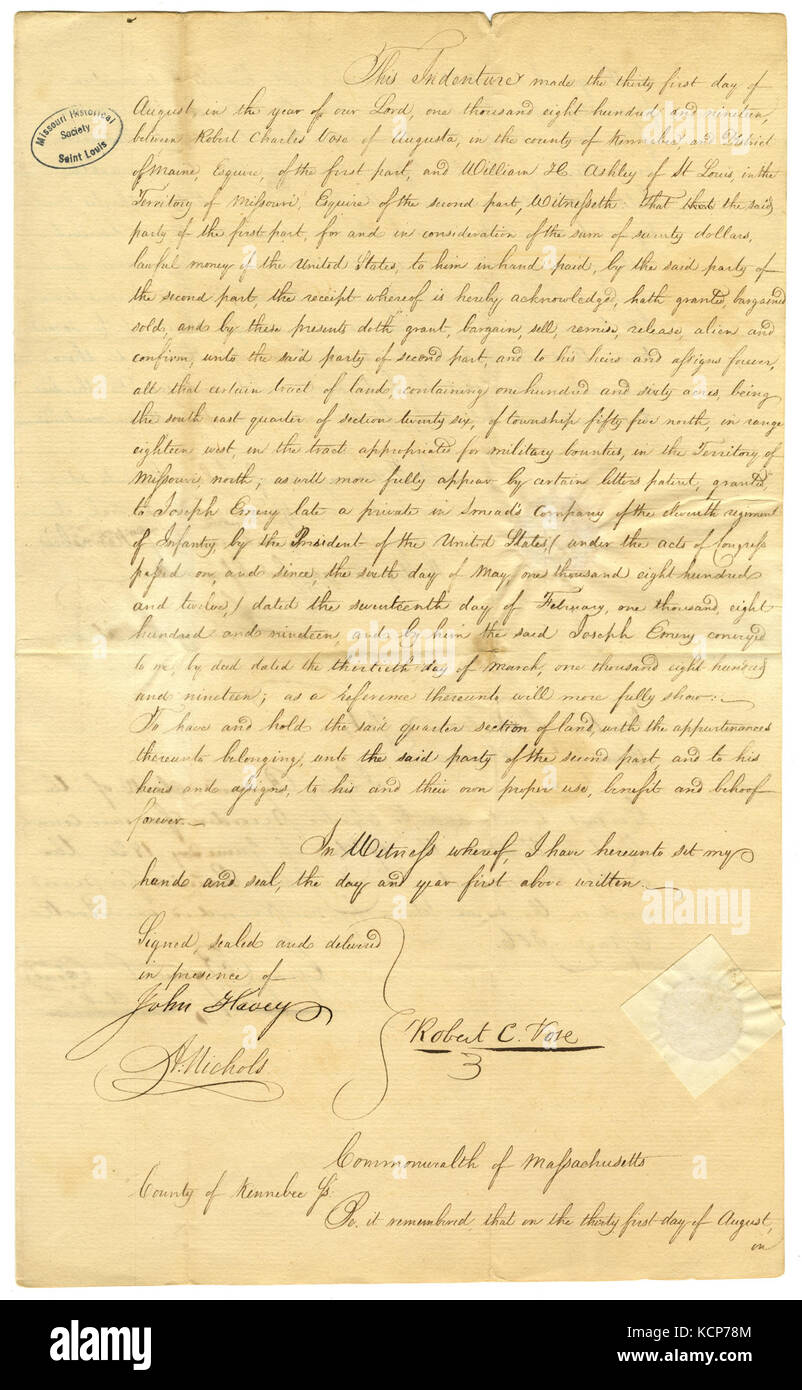 This Indenture made the thirty first day of
August, in the year of our Lord, one thousand eight hundred and nineteen,
between Robert Charles Vose of Augusta, in the county of Kennebec, and District
of Maine, Esquire, of the first part, and William H. Ashley of St Louis, in the
Territory of Missouri, Esquire of the second part, Witnesseth: that that the said
party of the first part, for and in consideration of the sum of seventy dollars,
lawful money of the United States, to him in hand paid, by the said party of
the second part, the receipt whereof is hereby acknowledged, hath granted, bargained
sold, and by these presents doth grant, bargain, sell, remise, release, alien and
confirm, unto the said party of second part, and to his heirs and assigns forever,
all that certain tract of land, containing one hundred and sixty acres, being
the south east quarter of section twenty six, of township fifty five north, in range
eighteen west, in the tract appropriated for military bounties, in the Territory of
Missouri, north; as will more fully appear by certain letters patent, granted,
to Joseph Emery late a private in Smead's Company of the eleventh regiment
of Infantry, by the President of the United States, (under the acts of Congress
passed on, and since, the sixth day of May, one thousand eight hundred
and twelve,) dated the seventeenth day of February, one thousand, eight
hundred and nineteen, and by him the said Joseph Emery conveyed
to me, by deed dated the thirtieth day of March, one thousand eight hundred
and nineteen; as a reference thereunto will more fully show:—
To have and hold the said quarter section of land, with the appurtenances
thereunto belonging, unto the said party of the second part, and to his
heirs and assigns, to his and their own proper use, benefit and behoof
forever.—
In Witness whereof, I have hereunto set my
hand and seal, the day and year first above written.—
Signed, sealed and delivered
in presence of
John Havey
A. Nichols
Robert C. Vose
Commonwealth of Massachusetts
County of Kennebec ss.
Be it remembered, that on the thirty first day of August,
on
Missouri Historical
Society
Saint Louis
alamy
a
alamy
Image ID: KCP78M
www.alamy.com